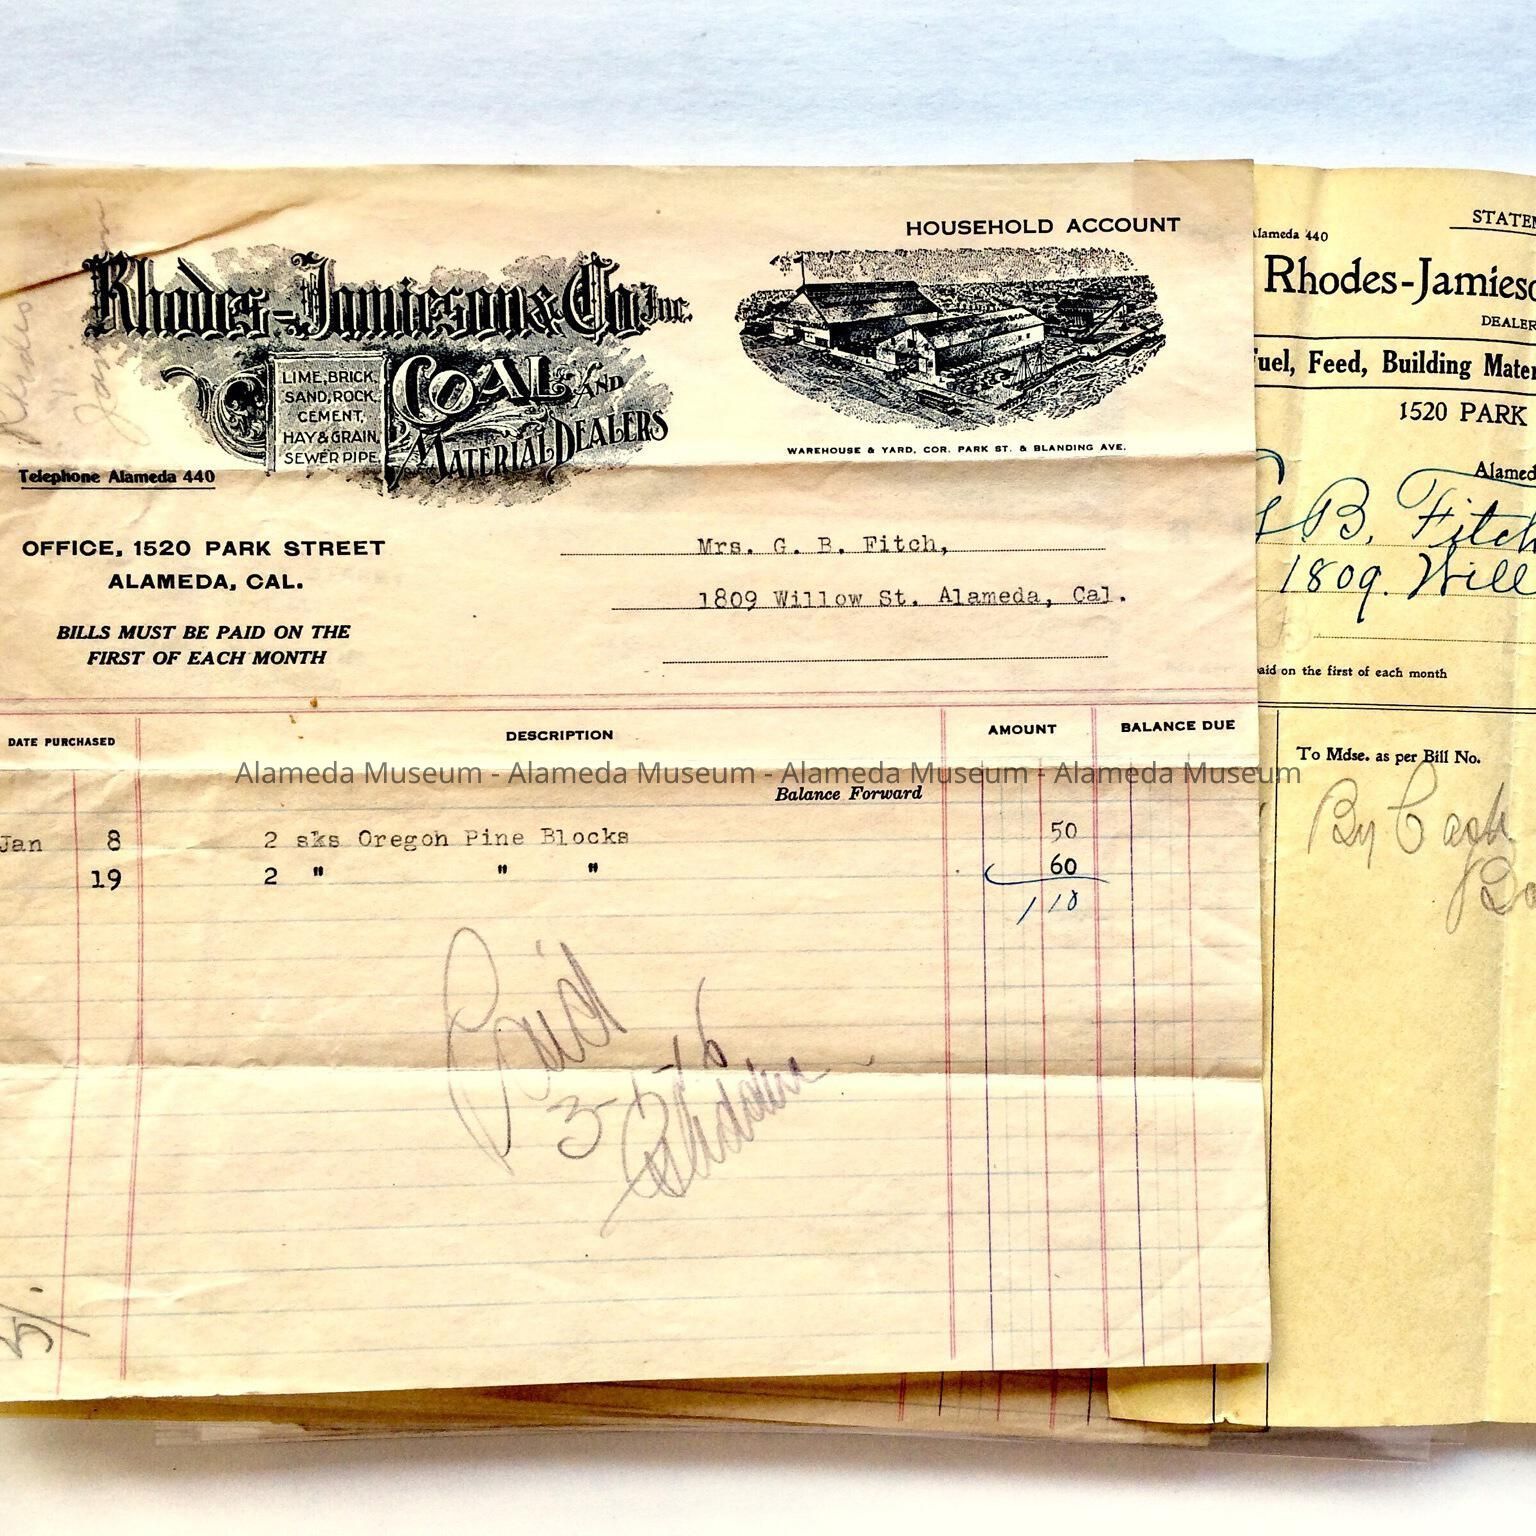 HOUSEHOLD ACCOUNT
Rhodes-Jamieson & Co. Inc.
LIME, BRICK,
SAND, ROCK,
CEMENT,
HAY & GRAIN,
SEWER PIPE
COAL AND
MATERIAL DEALERS
WAREHOUSE & YARD, COR. PARK ST. & BLANDING AVE.
Rhodes
Jamieson
Telephone Alameda 440
OFFICE, 1520 PARK STREET
ALAMEDA, CAL.
BILLS MUST BE PAID ON THE
FIRST OF EACH MONTH
Mrs. G. B. Fitch,
1809 Willow St. Alameda, Cal.
DATE PURCHASED DESCRIPTION AMOUNT BALANCE DUE
Alameda Museum - Alameda Museum - Alameda Museum - Alameda Museum
Balance Forward
Jan 8 2 sks Oregon Pine Blocks 50
19 2 " " " 60
1 10
Paid
STATEM
Alameda 440
Rhodes-Jamieso
DEALER
Fuel, Feed, Building Mater
1520 PARK
Alamed
G. B. Fitch
1809. Will
aid on the first of each month
To Mdse. as per Bill No.
By Cash